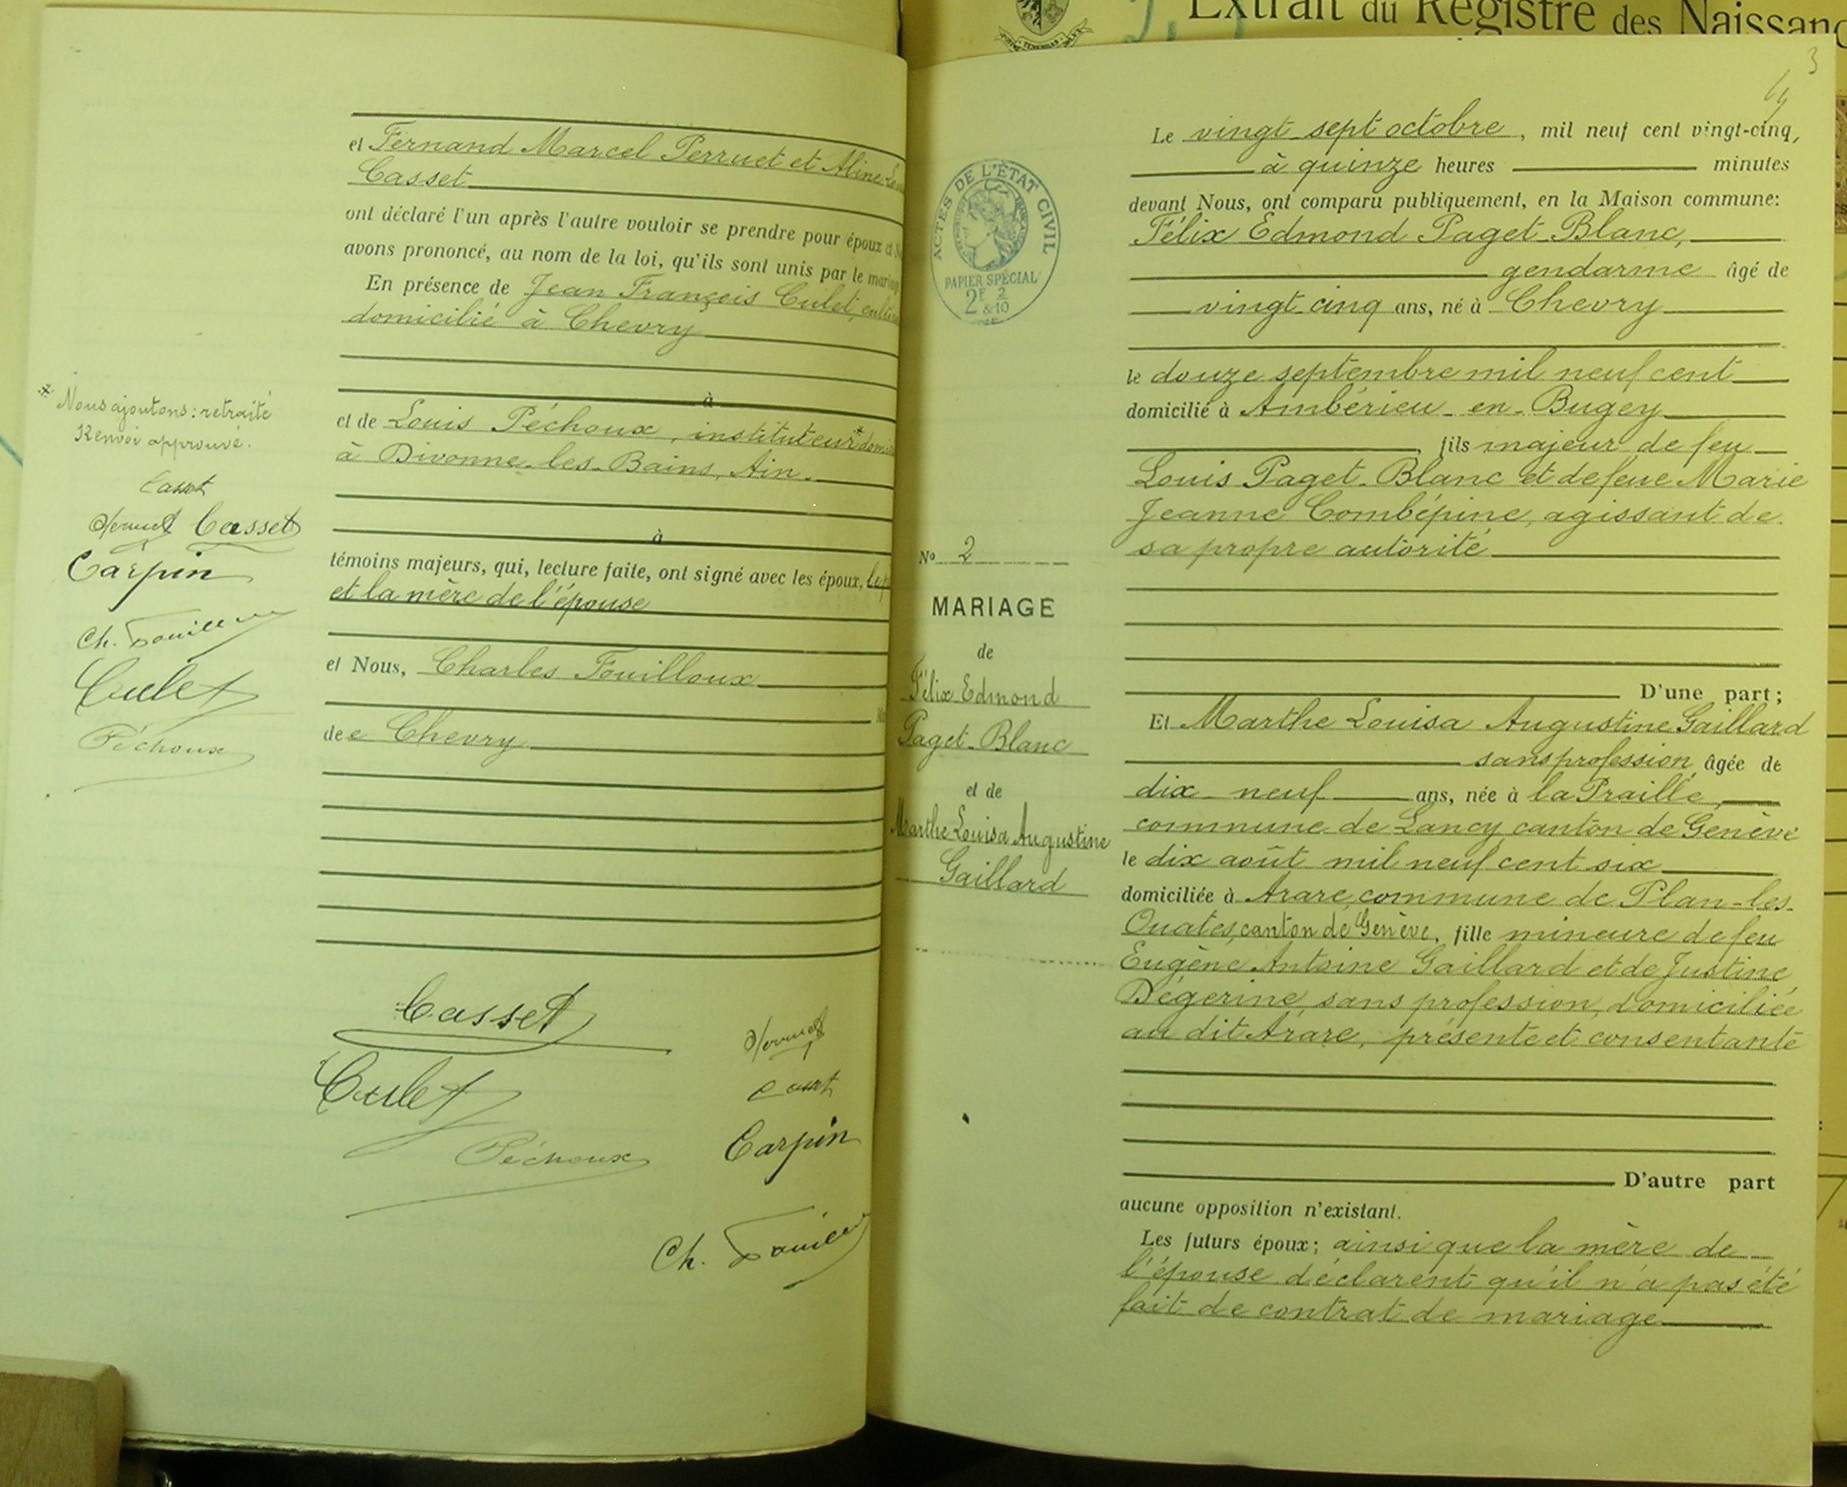 et Fernand Marcel Perruet et Aline
Casset
ont déclaré l'un après l'autre vouloir se prendre pour époux et
avons prononcé, au nom de la loi, qu'ils sont unis par le
En présence de Jean François Culet,
domicilié à Chevry
à
et de Louis Péchoux, instituteur*
à Divonne-les-Bains, Ain.
à
témoins majeurs, qui, lecture faite, ont signé avec les époux,
et la mère de l'épouse
et Nous, Charles Fouilloux
de Chevry
* Nous ajoutons: retraité
Renvoi approuvé.
Casset
Perruet Casset
Carpin
Ch. Fouilloux
Culet
Péchoux
Casset
Perruet
Culet
Casset
Péchoux
Carpin
Ch. Fouilloux
Extrait du Registre des Naissanc
3
ACTES DE L'ÉTAT CIVIL
PAPIER SPÉCIAL
2F 2
&10
N° 2
MARIAGE
de
Félix Edmond
Paget-Blanc
et de
Marthe Louisa Augustine
Gaillard
Le vingt sept octobre, mil neuf cent vingt-cinq,
à quinze heures minutes
devant Nous, ont comparu publiquement, en la Maison commune:
Félix Edmond Paget-Blanc,
gendarme âgé de
vingt cinq ans, né à Chevry
le douze septembre mil neuf cent
domicilié à Ambérieu-en-Bugey
fils majeur de feu
Louis Paget-Blanc et de feue Marie
Jeanne Combépine, agissant de
sa propre autorité
D'une part;
Et Marthe Louisa Augustine Gaillard
sans profession âgée de
dix neuf ans, née à la Praille,
commune de Lancy canton de Genève
le dix août mil neuf cent six
domiciliée à Arare, commune de Plan-les-
Ouates, canton de Genève, fille mineure de feu
Eugène Antoine Gaillard et de Justine
Dégerine, sans profession, domiciliée
au dit Arare, présente et consentante
D'autre part
aucune opposition n'existant.
Les futurs époux; ainsi que la mère de
l'épouse déclarent qu'il n'a pas été
fait de contrat de mariage